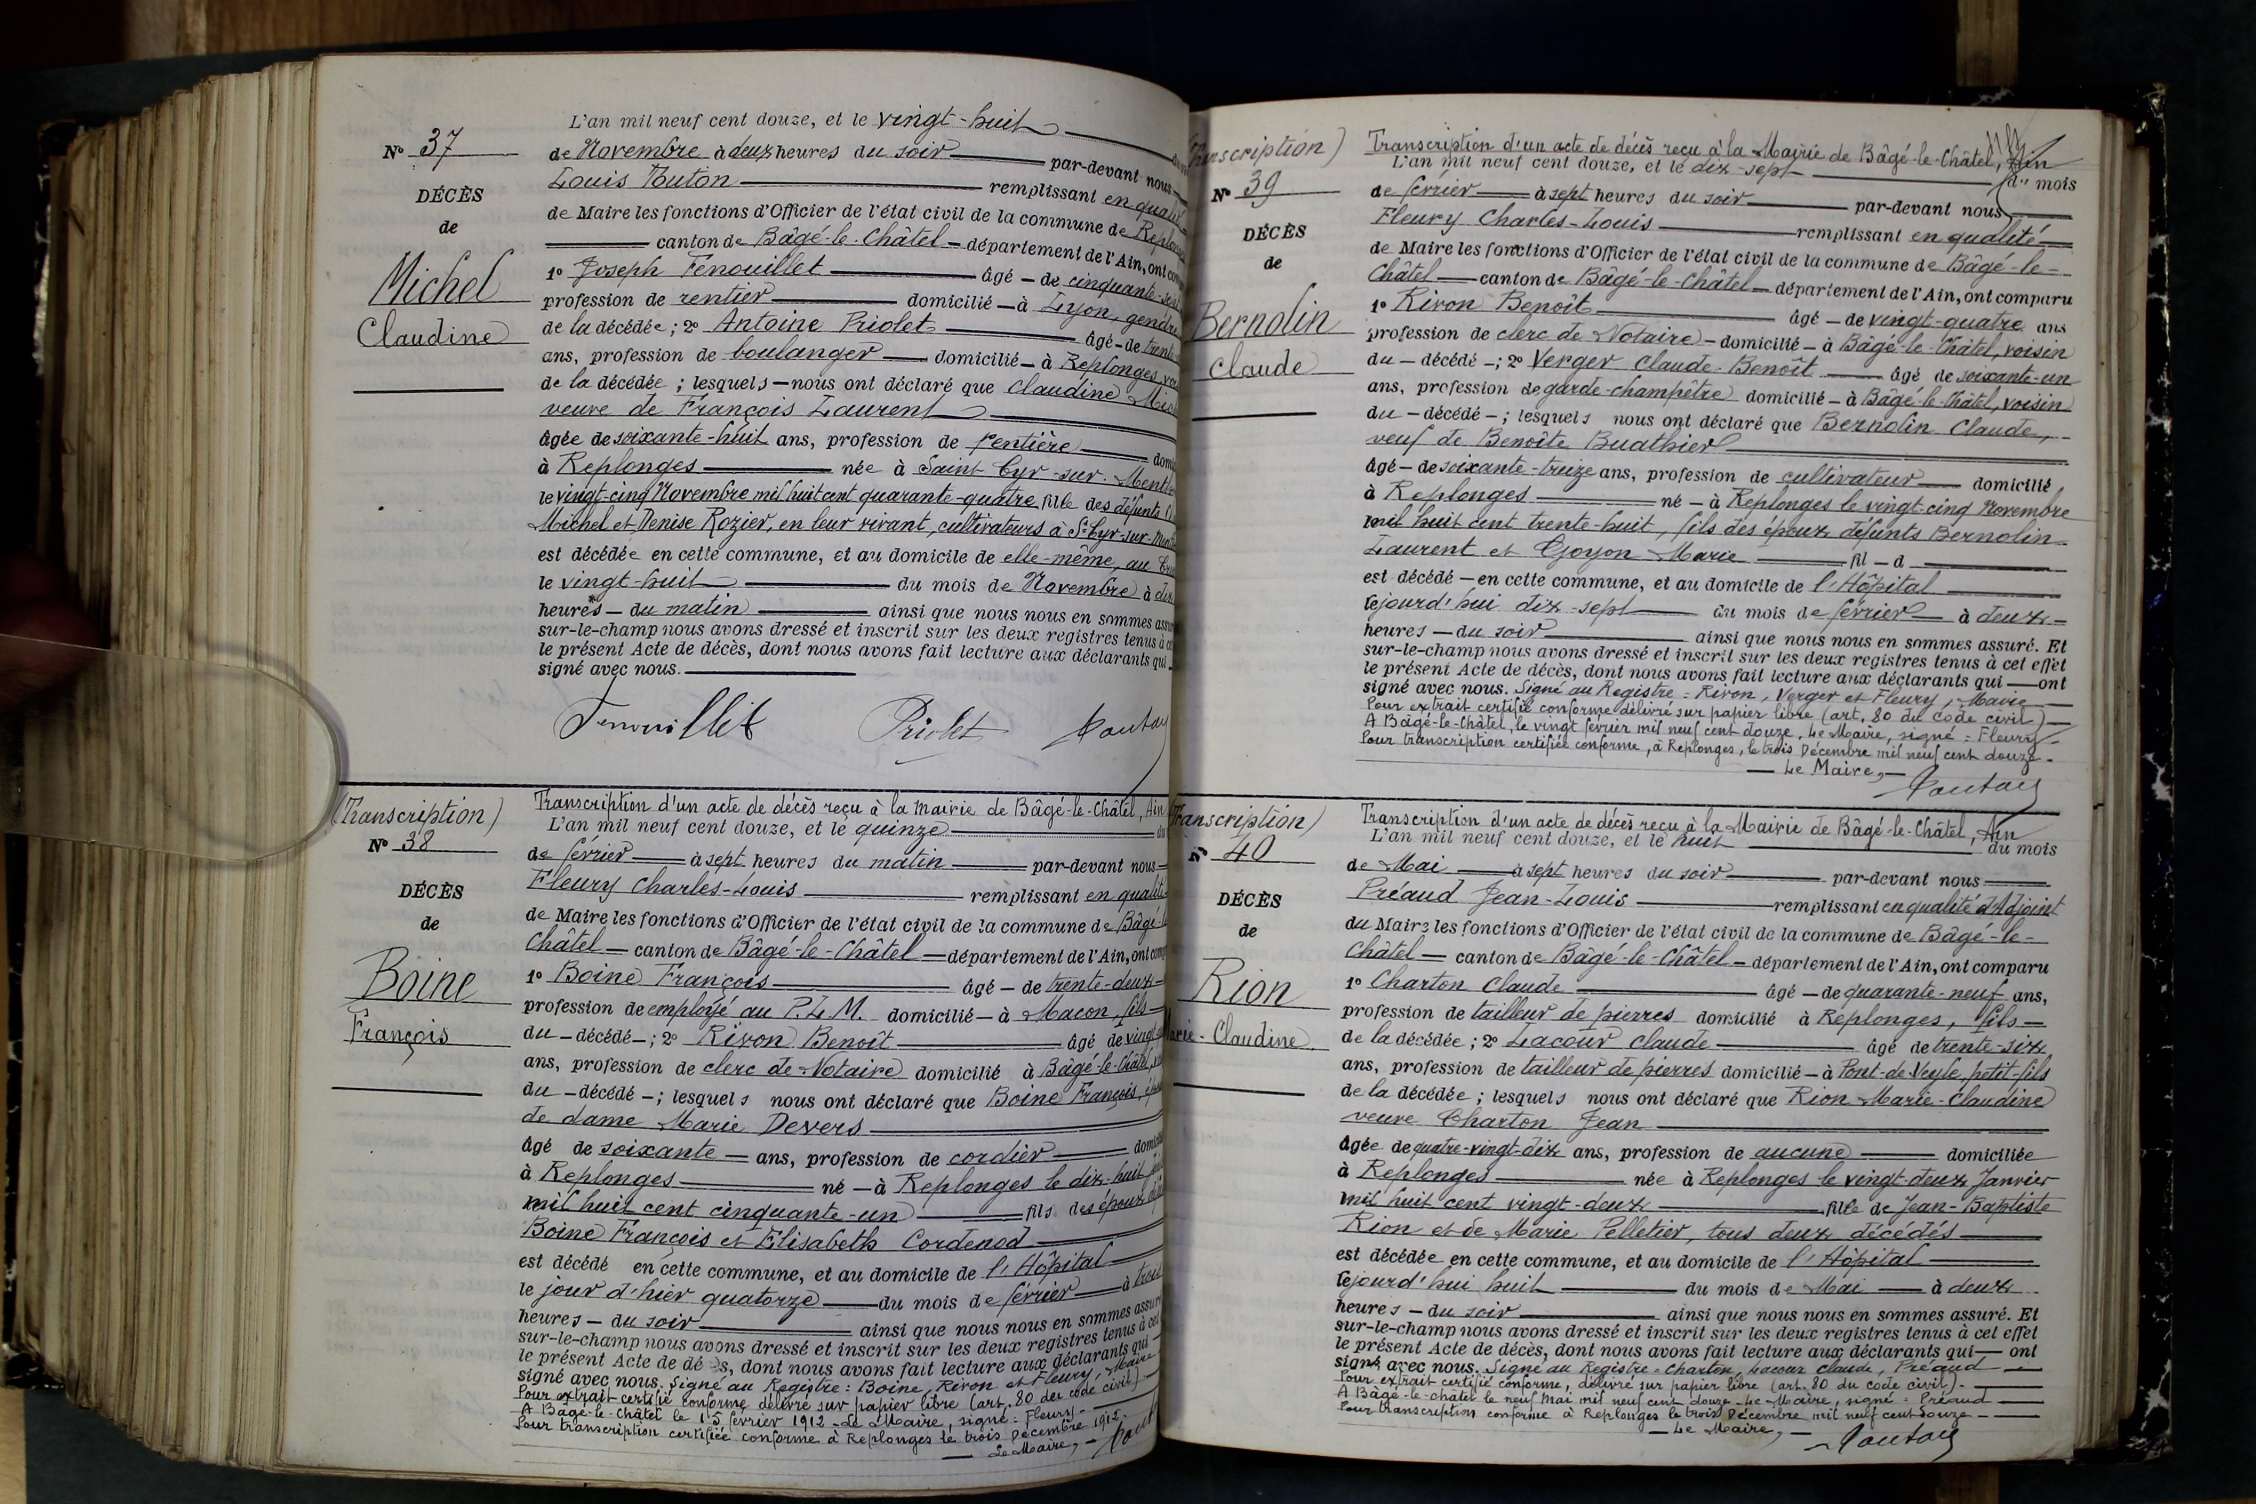 L'an mil neuf cent douze, et le vingt-huit
N° 37
de Novembre à deux heures du soir par-devant nous
Louis remplissant en qualité
DÉCÈS
de Maire les fonctions d'Officier de l'état civil de la commune de Replonges
de
canton de Bâgé-le-Châtel département de l'Ain, ont
Michel
1° Joseph Fenouillet âgé de cinquante-
profession de rentier domicilié à Lyon, gendre
Claudine
de la décédée ; 2° Antoine Priolet âgé de trente
ans, profession de boulanger domicilié à Replonges,
de la décédée ; lesquels nous ont déclaré que Claudine
veuve de François Laurent
âgée de soixante-huit ans, profession de rentière
à Replonges née à Saint Cyr-sur-Menthon
le vingt-cinq Novembre mil huit cent quarante-quatre fille des défunts
Michel et Denise Rozier, en leur vivant, cultivateurs à St Cyr-sur-
est décédée en cette commune, et au domicile de elle-même, au
le vingt-huit du mois de Novembre à
heures du matin ainsi que nous nous en sommes
sur-le-champ nous avons dressé et inscrit sur les deux registres tenus à
le présent Acte de décès, dont nous avons fait lecture aux déclarants qui
signé avec nous.
Fenouillet Priolet
(Transcription)
Transcription d'un acte de décès reçu à la Mairie de Bâgé-le-Châtel, Ain
L'an mil neuf cent douze, et le quinze du
N° 38
de février à sept heures du matin par-devant nous
Fleury Charles-Louis remplissant en qualité
DÉCÈS
de Maire les fonctions d'Officier de l'état civil de la commune de Bâgé-le
de
Châtel canton de Bâgé-le-Châtel département de l'Ain, ont
Boine
1° Boine François âgé de trente-deux
profession de employé au P.L.M. domicilié à Macon, fils
François
du décédé ; 2° Rivon Benoît âgé de vingt
ans, profession de clerc de Notaire domicilié à Bâgé-le-Châtel,
du décédé ; lesquels nous ont déclaré que Boine François,
de dame Marie Devers
âgé de soixante ans, profession de cordier
à Replonges né à Replonges le dix-huit
mil huit cent cinquante-un fils des époux
Boine François et Elisabeth Cordenod
est décédé en cette commune, et au domicile de l'Hôpital
le jour d'hier quatorze du mois de février à trois
heures du soir ainsi que nous nous en sommes assuré
sur-le-champ nous avons dressé et inscrit sur les deux registres tenus à cet
le présent Acte de décès, dont nous avons fait lecture aux déclarants qui
signé avec nous. Signé au Registre : Boine, Rivon et Fleury, Maire
Pour extrait certifié conforme délivré sur papier libre (art. 80 du code civil)
A Bâgé-le-Châtel le 15 février 1912 - Le Maire, signé : Fleury -
Pour transcription certifiée conforme à Replonges le trois Décembre 1912.
Le Maire,
(Transcription)
Transcription d'un acte de décès reçu à la Mairie de Bâgé-le-Châtel, Ain
L'an mil neuf cent douze, et le dix-sept du mois
N° 39
de février à sept heures du soir par-devant nous
Fleury Charles-Louis remplissant en qualité
DÉCÈS
de Maire les fonctions d'Officier de l'état civil de la commune de Bâgé-le-
de
Châtel canton de Bâgé-le-Châtel département de l'Ain, ont comparu
Bernolin
1° Rivon Benoît âgé de vingt-quatre ans
profession de clerc de Notaire domicilié à Bâgé-le-Châtel, voisin
Claude
du décédé ; 2° Verger Claude-Benoît âgé de soixante-un
ans, profession de garde-champêtre domicilié à Bâgé-le-Châtel, voisin
du décédé ; lesquels nous ont déclaré que Bernolin Claude,
veuf de Benoîte Buathier
âgé de soixante-treize ans, profession de cultivateur domicilié
à Replonges né à Replonges le vingt-cinq Novembre
mil huit cent trente-huit, fils des époux défunts Bernolin
Laurent et Goyon Marie fil d
est décédé en cette commune, et au domicile de l'Hôpital
cejourd'hui dix-sept du mois de février à deux
heures du soir ainsi que nous nous en sommes assuré. Et
sur-le-champ nous avons dressé et inscrit sur les deux registres tenus à cet effet
le présent Acte de décès, dont nous avons fait lecture aux déclarants qui ont
signé avec nous. Signé au Registre : Rivon, Verger et Fleury, Maire
Pour extrait certifié conforme délivré sur papier libre (art. 80 du code civil)
A Bâgé-le-Châtel, le vingt février mil neuf cent douze, Le Maire, signé : Fleury -
Pour transcription certifiée conforme, à Replonges, le trois Décembre mil neuf cent douze.
Le Maire,
(Transcription)
Transcription d'un acte de décès reçu à la Mairie de Bâgé-le-Châtel, Ain
L'an mil neuf cent douze, et le huit du mois
N° 40
de Mai à sept heures du soir par-devant nous
Préaud Jean-Louis remplissant en qualité d'Adjoint
DÉCÈS
du Maire les fonctions d'Officier de l'état civil de la commune de Bâgé-le-
de
Châtel canton de Bâgé-le-Châtel département de l'Ain, ont comparu
Rion
1° Charton Claude âgé de quarante-neuf ans,
profession de tailleur de pierres domicilié à Replonges, fils
Marie-Claudine
de la décédée ; 2° Lacour Claude âgé de trente-six
ans, profession de tailleur de pierres domicilié à Pont-de-Veyle, petit-fils
de la décédée ; lesquels nous ont déclaré que Rion Marie-Claudine
veuve Charton Jean
âgée de quatre-vingt-dix ans, profession de aucune domiciliée
à Replonges née à Replonges le vingt-deux Janvier
mil huit cent vingt-deux fille de Jean-Baptiste
Rion et de Marie Pelletier, tous deux décédés
est décédée en cette commune, et au domicile de l'Hôpital
cejourd'hui huit du mois de Mai à deux
heures du soir ainsi que nous nous en sommes assuré. Et
sur-le-champ nous avons dressé et inscrit sur les deux registres tenus à cet effet
le présent Acte de décès, dont nous avons fait lecture aux déclarants qui ont
signé avec nous. Signé au Registre : Charton, Lacour Claude, Préaud
Pour extrait certifié conforme, délivré sur papier libre (art. 80 du code civil).
A Bâgé-le-Châtel le neuf Mai mil neuf cent douze - Le Maire, signé : Préaud
Pour transcription conforme à Replonges le trois Décembre mil neuf cent douze
Le Maire,